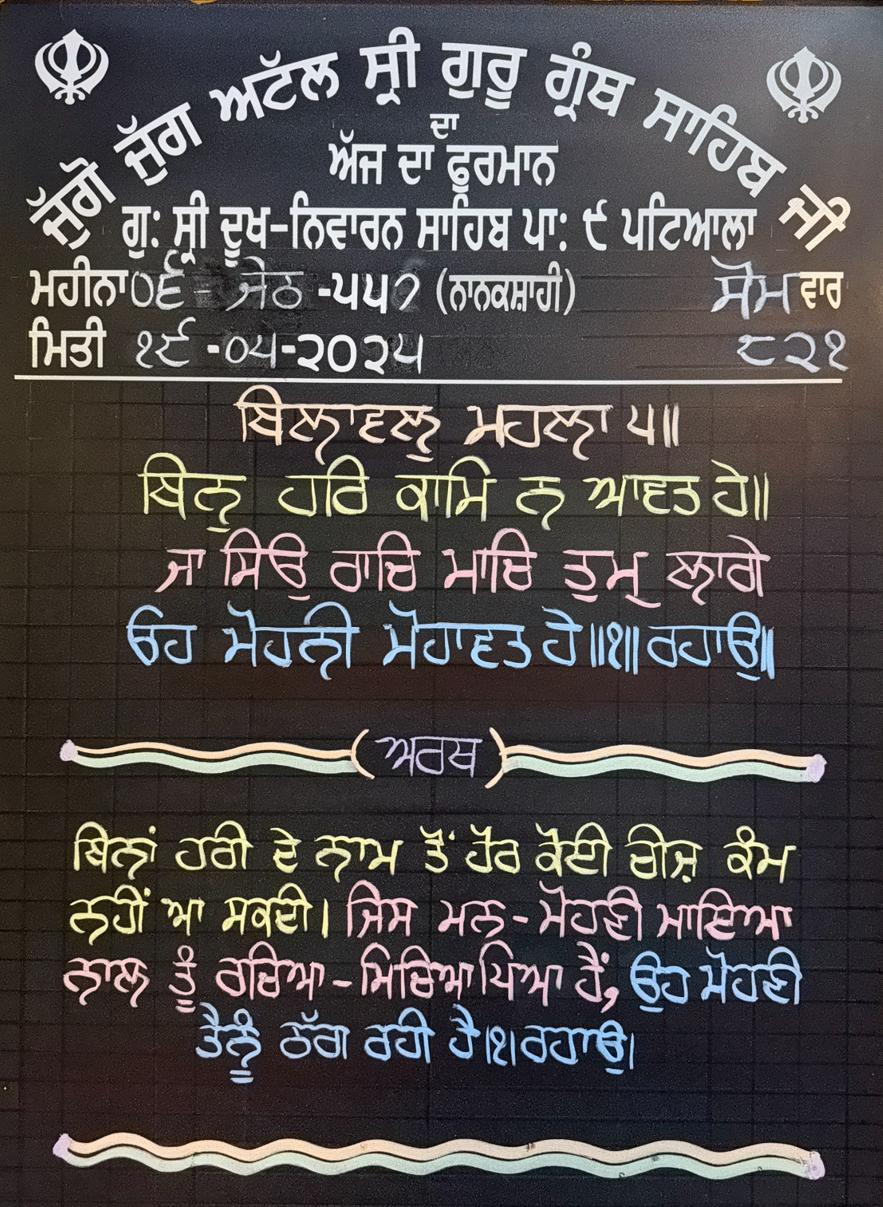 ਜੁੱਗੋ ਜੁੱਗ ਅਟੱਲ ਸ੍ਰੀ ਗੁਰੂ ਗ੍ਰੰਥ ਸਾਹਿਬ ਜੀ
ਦਾ
ਅੱਜ ਦਾ ਫੁਰਮਾਨ
ਗੁ: ਸ੍ਰੀ ਦੂਖ-ਨਿਵਾਰਨ ਸਾਹਿਬ ਪਾ: ੯ ਪਟਿਆਲਾ
ਮਹੀਨਾ ੦੬ - ਜੇਠ -੫੫੭ (ਨਾਨਕਸ਼ਾਹੀ) ਸੋਮ ਵਾਰ
ਮਿਤੀ ੧੯ -੦੫-੨੦੨੫ ੮੨੧
ਬਿਲਾਵਲੁ ਮਹਲਾ ੫॥
ਬਿਨੁ ਹਰਿ ਕਾਮਿ ਨ ਆਵਤ ਹੇ॥
ਜਾ ਸਿਉ ਰਾਚਿ ਮਾਚਿ ਤੁਮ੍ ਲਾਗੇ
ਓਹ ਮੋਹਨੀ ਮੋਹਾਵਤ ਹੇ॥੧॥ ਰਹਾਉ॥
(ਅਰਥ)
ਬਿਨਾਂ ਹਰੀ ਦੇ ਨਾਮ ਤੋਂ ਹੋਰ ਕੋਈ ਚੀਜ਼ ਕੰਮ
ਨਹੀਂ ਆ ਸਕਦੀ। ਜਿਸ ਮਨ-ਮੋਹਣੀ ਮਾਇਆ
ਨਾਲ ਤੂੰ ਰਚਿਆ-ਮਿਚਿਆ ਪਿਆ ਹੈਂ, ਉਹ ਮੋਹਣੀ
ਤੈਨੂੰ ਠੱਗ ਰਹੀ ਹੈ।੧।ਰਹਾਉ।